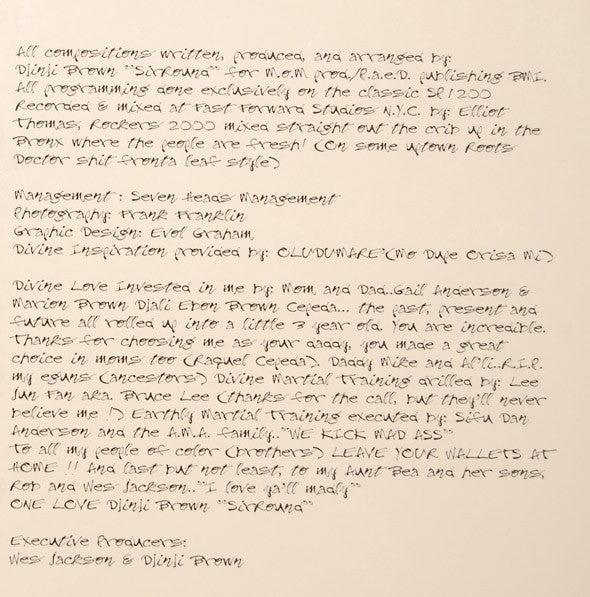 All compositions written, produced, and arranged by:
Djinji Brown "SirRound" for M.o.M prod./R.a.e.D. publishing BMI.
All programming done exclusively on the classic SP1200
Recorded & mixed at Fast Forward Studios N.Y.C. by: Elliot
Thomas, Rockers 2000 mixed straight out the crib up in the
Bronx where the people are fresh! (On some uptown Roots
Doctor shit fronta leaf style)
Management: Seven Heads Management
Photography: Frank Franklin
Graphic Design: Evol Graham,
Divine Inspiration provided by: OLUDUMARE'(Mo Dupe Orisa Mi)
Divine Love Invested in me by: Mom and Dad..Gail Anderson &
Marion Brown Djali Ebon Brown Cepeda... the past, present and
future all rolled up into a little 3 year old. You are incredible.
Thanks for choosing me as your daddy, you made a great
choice in moms too (Raquel Cepeda). Daddy Mike and Al'li..R.I.P.
my eguns (ancestors) Divine Martial Training drilled by: Lee
Jun Fan aka. Bruce Lee (thanks for the call, but they'll never
believe me !) Earthly Martial Training executed by: Sifu Dan
Anderson and the A.M.A. family.."WE KICK MAD ASS"
To all my people of color (brothers) LEAVE YOUR WALLETS AT
HOME !! And last but not least, to my Aunt Bea and her sons,
Rob and Wes Jackson.."I love ya'll madly"
ONE LOVE Djinji Brown "SirRound"
Executive Producers:
Wes Jackson & Djinji Brown